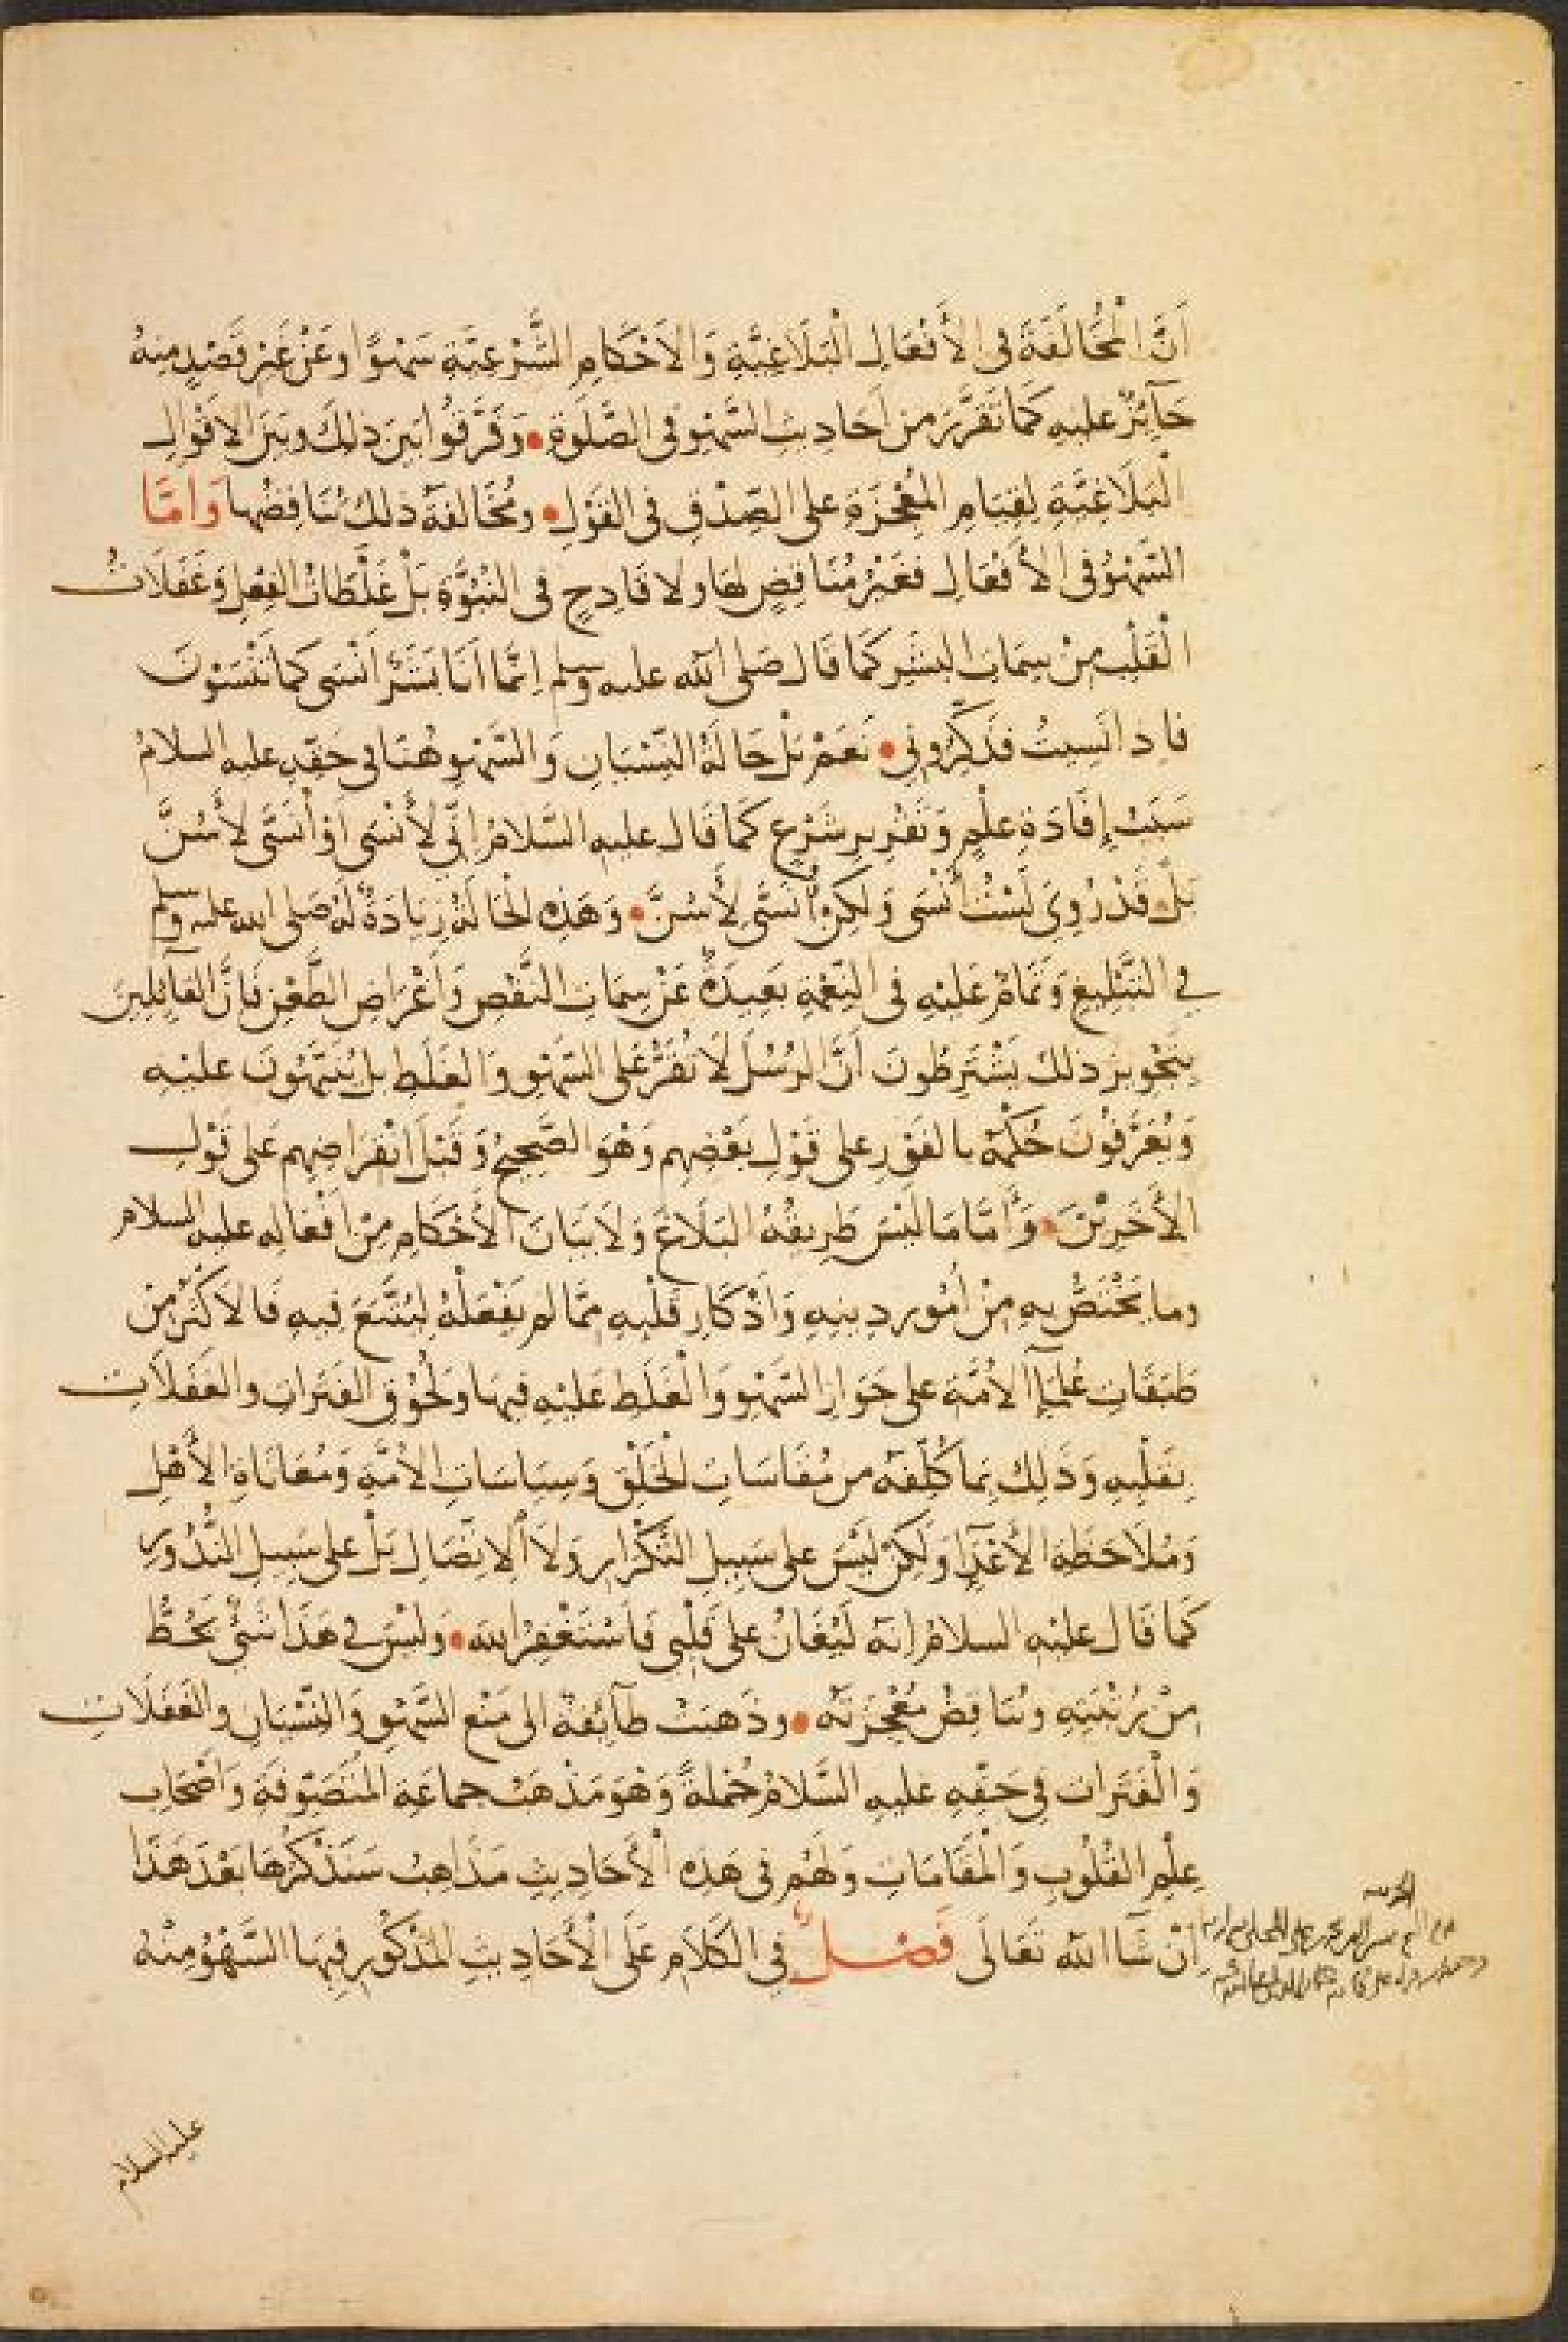 أَنَّ الْمُخَالَفَةَ فى الأَفْعَالِ الْبَلَاغِيَّةِ وَالأَحْكَامِ الشَّرْعِيَّةِ سَهْوًا وعَنْ غَيْرِ قَصْدٍ مِنهُ
جَآئِزٌ عليهِ كَمَا تَقَرَّرَ من أَحَادِيثِ السَّهْوِ فى الصَّلَوةِ • وَفَرَّقُوا بَيْنَ ذلِكَ وبَيْنَ الاَقْوَالِ
الْبَلَاغِيَّةِ لِقِيَامِ الْمُعْجِزَةِ على الصِّدْقِ فى القَوْلِ • ومُخَالَفَةُ ذلِكَ تُنَاقِضُها وَامَّا
السَّهْوُ فى الأَفْعَالِ فَغَيْرُ مُنَاقِضٍ لَهَا ولا قَادِحٍ فى النُّبُوَّةِ بَلْ غَلَطَاتُ الفِعْلِ وَغَفَلَاتُ
الْقَلْبِ مِنْ سِمَاتِ البَشَرِ كَمَا قَالَ صَلى الله عليه وسلم اِنَّمَا أَنَا بَشَرٌ أَنْسَى كَمَا تَنْسَوْنَ
فاِذا نَسِيتُ فذَكِّرُونِي • نَعَمْ بَلْ حَالَةُ النِّسْيَانِ وَالسَّهْوِ هُنَا في حَقِّهِ عليه السلامُ
سَبَبُ إِفَادَةِ عِلْمٍ وَتَقْرِيرِ شَرْعٍ كَمَا قَالَ عليهِ السَّلامُ اِنِّي لأَنْسَى أَوْ أُنَسَّى لأَسُنَّ
بَلْ قَدْ رُوِيَ لَسْتُ أَنْسَى وَلكِنْ أُنَسَّى لأَسُنَّ • وَهَذِهِ الْحَالَةُ زِيَادَةٌ لَهُ صَلى الله عليه وسلم
فِي التَّبْلِيغِ وَتَمَامٌ عَلَيْهِ فى النِّعْمَةِ بَعِيدَةٌ عَنْ سِمَاتِ النَّقْصِ وَأَغْرَاضِ الطَّعْنِ فَاِنَّ القَآئِلِينَ
بِتَجْوِيزِ ذلكَ يَشْتَرِطُونَ أَنَّ الرُّسُلَ لَا تُقَرُّ عَلى السَّهْوِ وَالْغَلَطِ بل يُنَبَّهُونَ عليْهِ
وَيُعَرَّفُونَ حُكْمَهُ بالْفَوْرِ على قَوْلِ بَعْضِهِم وَهْوَ الصَّحِيحُ وَقَبْلَ انْقِرَاضِهِم عَلى قَوْلِ
الأَخَرِيْنَ • وَأَمَّا مَا لَيْسَ طَرِيقُهُ البَلَاغَ وَلَا بَيَانَ الأَحْكَامِ مِنْ أَفْعَالِهِ عليه السلام
وما يَخْتَصُّ بِهِ مِنْ أُمُورِ دِينِهِ وَأَذْكَارِ قَلْبِهِ مِمَّا لم يَفْعَلْهُ لِيُتَّبَعَ فِيهِ فَالاَكْثَرُ مِنْ
طَبَقَاتِ عُلَمَآءِ الأُمَّةِ على جَوَازِ السَّهْوِ وَالْغَلَطِ عَلَيْهِ فيهَا ولُحُوْقِ الفَتَرَاتِ والغَفَلَاتِ
بِقَلْبِهِ وَذَلِكَ بِمَا كُلِّفَهُ من مُقَاسَاتِ الْخَلْقِ وَسِيَاسَاتِ الأُمَّةِ وَمُعَانَاةِ الأَهْلِ
وَمُلَاحَظَةِ الأَعْدَآءِ وَلَكِنْ لَيْسَ على سَبِيلِ التَّكْرَارِ وَلَا الاِتِّصَالِ بَلْ على سَبِيلِ النُّدُورِ
كَمَا قَالَ عليْهِ السلامُ اِنَّهُ لَيُغَانُ على قَلْبِي فَأَسْتَغْفِرُ اللهَ • وَلَيْسَ فِي هَذَا شَيْءٌ يَحُطُّ
مِنْ رُتْبَتِهِ وتُنَاقِضُ مُعْجِزَتَهُ • وذَهَبَتْ طَآئِفَةٌ الى مَنْعِ السَّهْوِ وَالنِّسْيَانِ والغَفَلَاتِ
وَالْفَتَرَاتِ فِي حَقِّهِ عليهِ السَّلامُ جُمْلَةً وَهْوَ مَذْهَبُ جماعَةِ المُتَصَوِّفَةِ وَأَصْحَابِ
عِلْمِ القُلُوبِ وَالْمَقَامَاتِ وَلَهُم فى هَذِه الأَحَادِيثِ مَذَاهِبُ سَنَذْكُرُهَا بَعْدَ هَذَا
اِنْ شَآ اللهُ تَعَالَى فَصْلٌ فِي الكَلَامِ عَلَى الْأَحَادِيثِ الْمَذْكُورِ فِيهَا السَّهْوُ مِنْهُ
عليه السلام